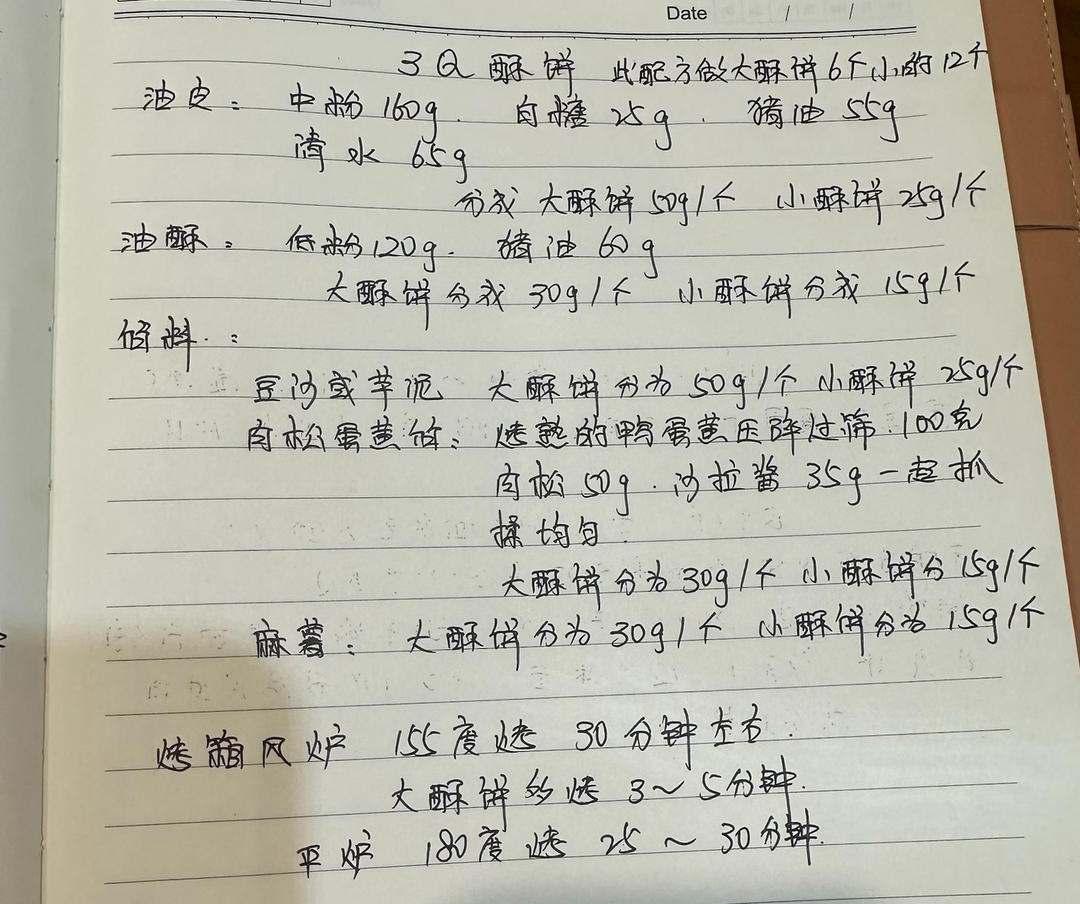 Date / /
3Q酥饼 此配方做大酥饼6个小的12个
油皮: 中粉160g. 白糖25g. 猪油55g
清水65g
分成 大酥饼50g/个 小酥饼25g/个
油酥: 低粉120g. 猪油60g
大酥饼分成30g/个 小酥饼分成15g/个
馅料.:
豆沙或芋泥 大酥饼分为50g/个 小酥饼25g/个
肉松蛋黄馅: 烤熟的鸭蛋黄压碎过筛.100克
肉松50g.沙拉酱35g一起抓
揉均匀.
大酥饼分为30g/个 小酥饼分15g/个
麻薯: 大酥饼分为30g/个 小酥饼分为15g/个
烤箱风炉 155度烤 30分钟左右.
大酥饼多烤3~5分钟.
平炉 180度烤 25~30分钟.